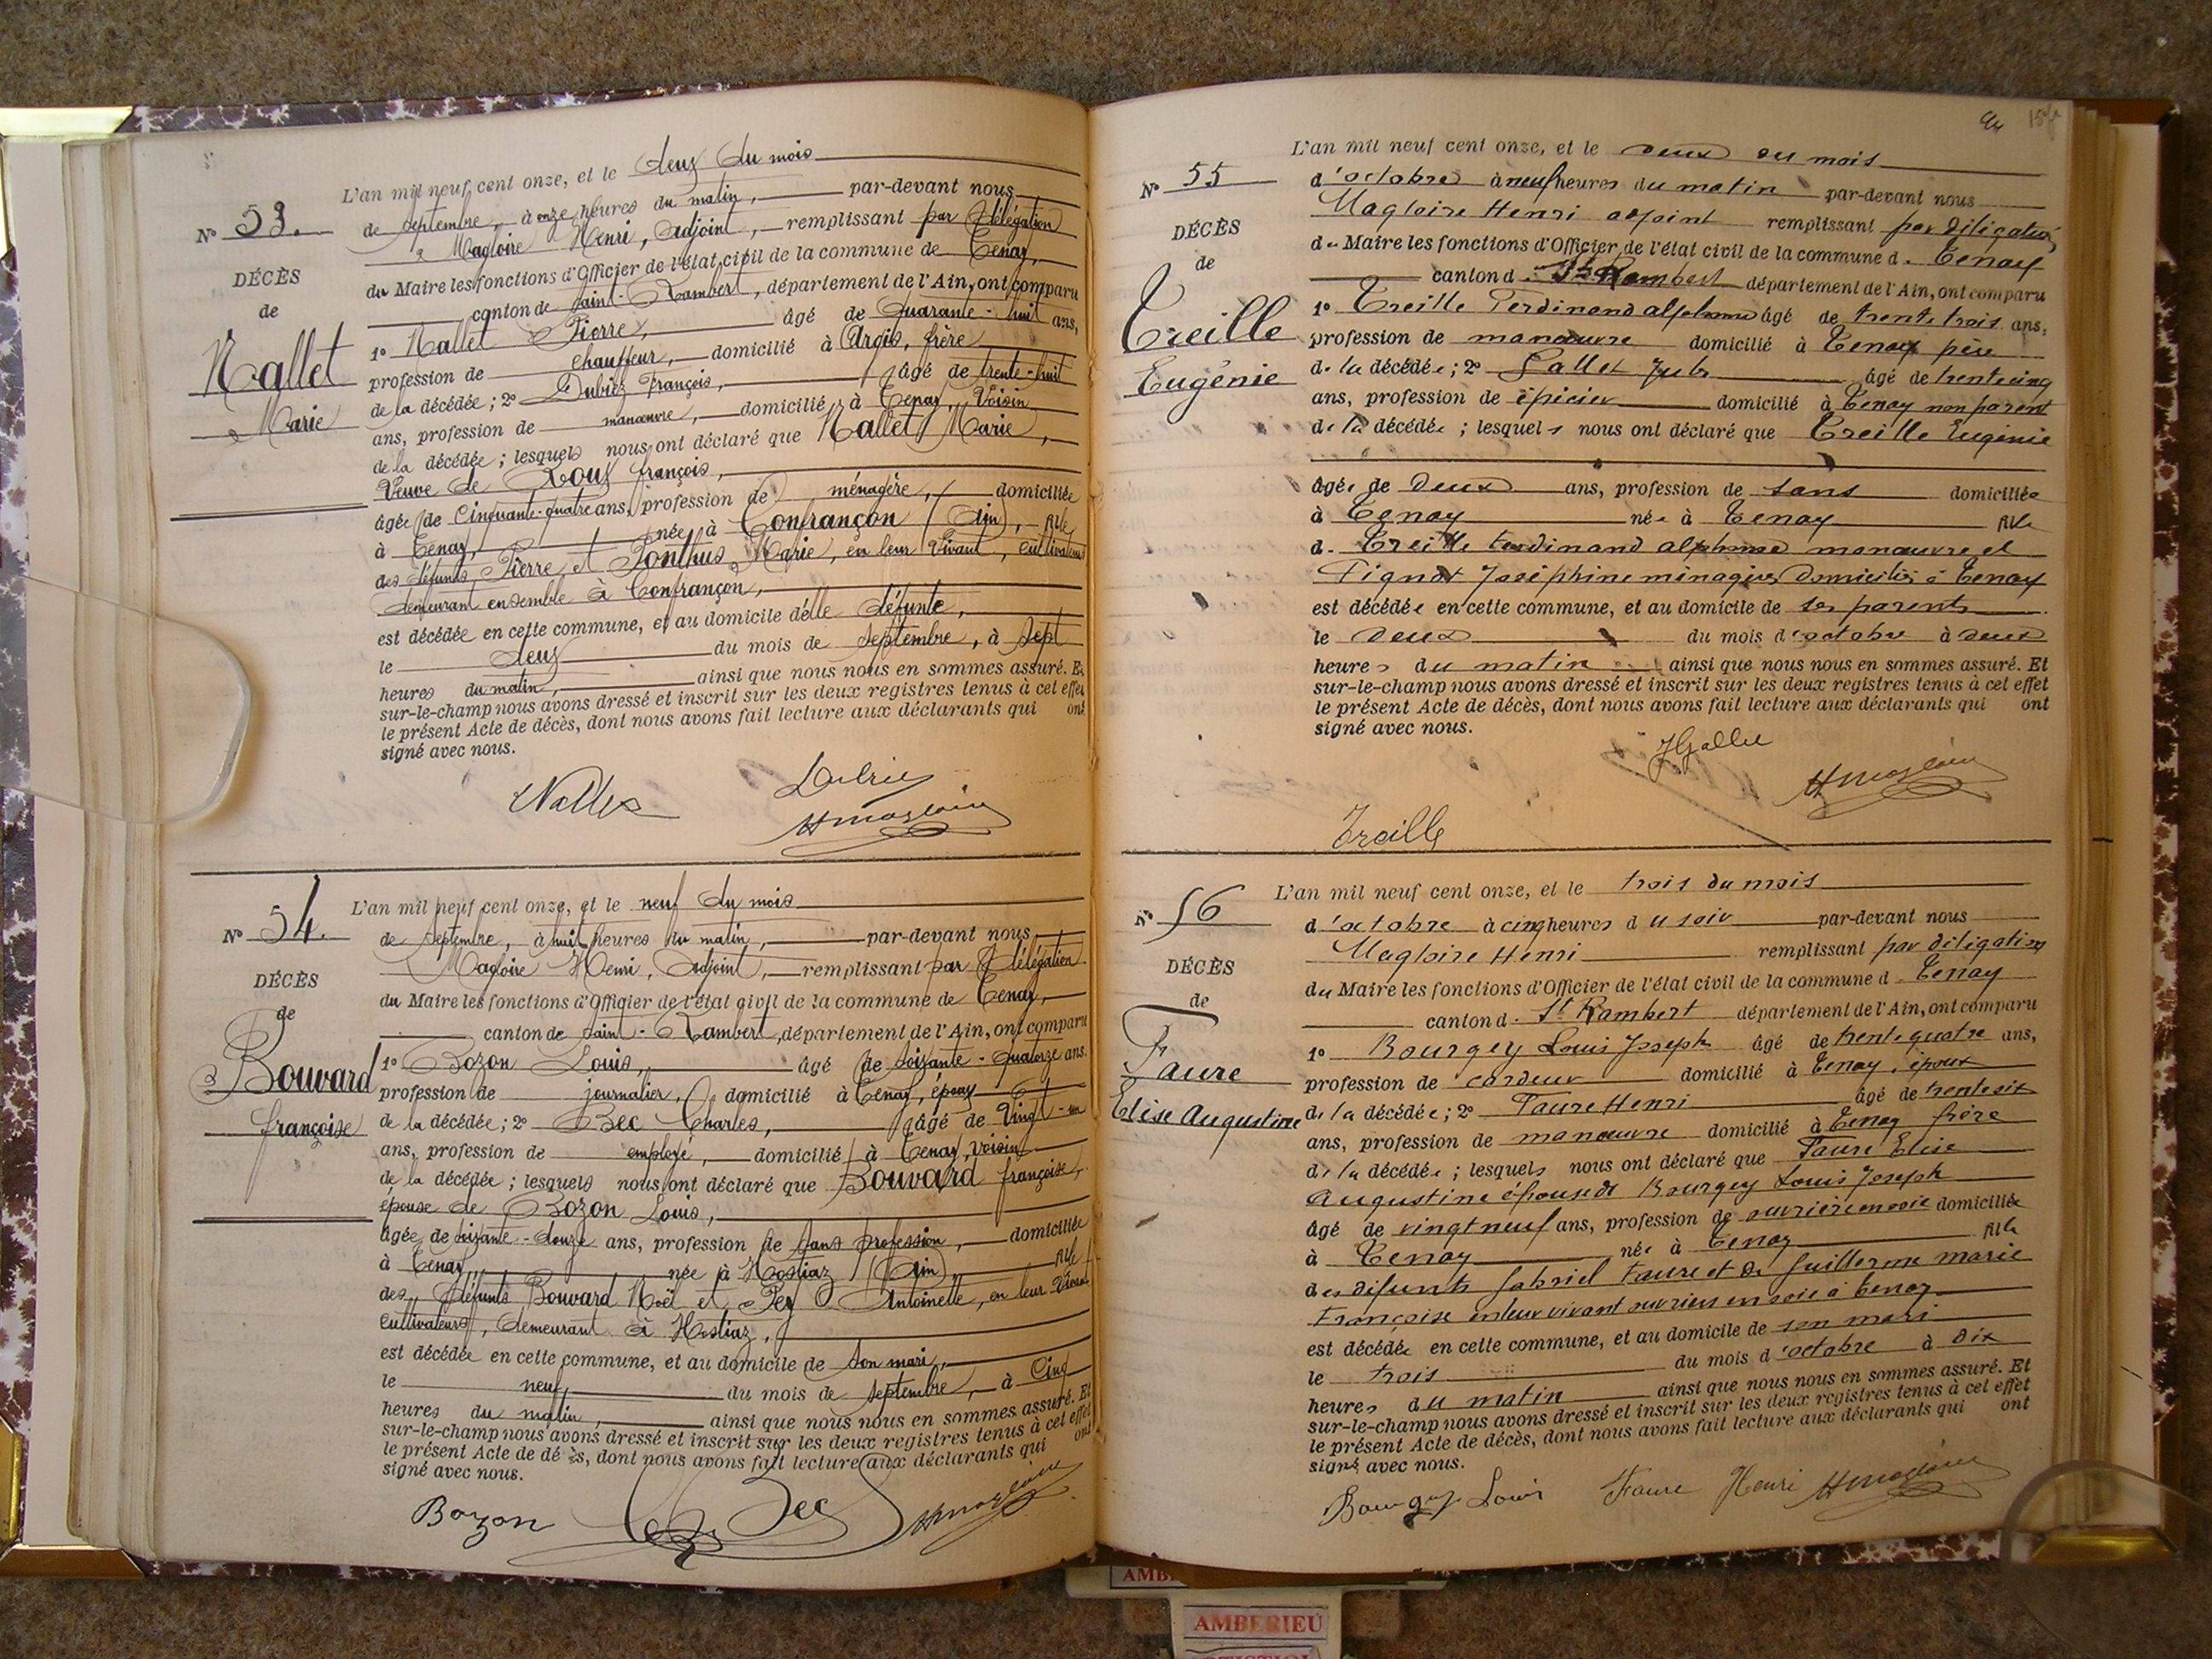 L'an mil neuf cent onze, et le deux du mois
N° 53.
de septembre, à onze heures du matin, par-devant nous
Magloire Henri, adjoint, remplissant par délégation
DÉCÈS
du Maire les fonctions d'Officier de l'état civil de la commune de Tenay,
de
canton de Saint-Rambert, département de l'Ain, ont comparu
Nallet
1° Nallet Pierre, âgé de quarante-huit ans,
profession de chauffeur, domicilié à Argis, frère
Marie
de la décédée; 2° Dubiez François, âgé de trente-huit
ans, profession de manœuvre, domicilié à Tenay, voisin
de la décédée; lesquels nous ont déclaré que Nallet Marie,
Veuve de Roux François,
âgée de cinquante-quatre ans, profession de ménagère, domiciliée
à Tenay, née à Confrançon (Ain), fille
des défunts Pierre et Ponthus Marie, en leur vivant, cultivateurs
demeurant ensemble à Confrançon,
est décédée en cette commune, et au domicile d'elle défunte,
le deux du mois de septembre, à sept
heures du matin, ainsi que nous nous en sommes assuré. Et
sur-le-champ nous avons dressé et inscrit sur les deux registres tenus à cet effet
le présent Acte de décès, dont nous avons fait lecture aux déclarants qui ont
signé avec nous.
Nallet
HMagloire
L'an mil neuf cent onze, et le neuf du mois
N° 54.
de septembre, à huit heures du matin, par-devant nous
Magloire Henri, adjoint, remplissant par délégation
DÉCÈS
du Maire les fonctions d'Officier de l'état civil de la commune de Tenay,
de
canton de Saint-Rambert, département de l'Ain, ont comparu
Bouvard
1° Bozon Louis, âgé de soixante-quatorze ans.
profession de journalier, domicilié à Tenay, époux
françoise
de la décédée; 2° Bec Charles, âgé de vingt-un
ans, profession de employé, domicilié à Tenay, voisin
de la décédée; lesquels nous ont déclaré que Bouvard françoise,
épouse de Bozon Louis,
âgée de soixante-douze ans, profession de sans profession, domiciliée
à Tenay, née à Hostiaz (Ain), fille
des défunts Bouvard Noël et Pey Antoinette, en leur vivant
cultivateurs, demeurant à Hostiaz,
est décédée en cette commune, et au domicile de son mari,
le neuf, du mois de septembre, à cinq
heures du matin, ainsi que nous nous en sommes assuré. Et
sur-le-champ nous avons dressé et inscrit sur les deux registres tenus à cet effet
le présent Acte de dé ès, dont nous avons fait lecture aux déclarants qui ont
signé avec nous.
Bozon Bec HMagloire
L'an mil neuf cent onze, et le deux du mois
N° 55
d'octobre à neuf heures du matin par-devant nous
Magloire Henri adjoint remplissant par déligation
DÉCÈS
du Maire les fonctions d'Officier de l'état civil de la commune d. Tenay
de
canton d. St Rambert département de l'Ain, ont comparu
Treille
1° Treille Ferdinand alphonse âgé de trente trois ans,
profession de manœuvre domicilié à Tenay père
Eugénie
de la décédée; 2° Gallet Jules âgé de trente cinq
ans, profession de épicier domicilié à Tenay non parent
de la décédée; lesquels nous ont déclaré que Treille Eugénie
âgée de deux ans, profession de sans domiciliée
à Tenay née à Tenay fille
d. Treille Ferdinand alphonse manœuvre et
Pignot Joséphine ménagère, domiciliés à Tenay
est décédée en cette commune, et au domicile de ses parents
le deux du mois d'octobre à deux
heures du matin ainsi que nous nous en sommes assuré. Et
sur-le-champ nous avons dressé et inscrit sur les deux registres tenus à cet effet
le présent Acte de décès, dont nous avons fait lecture aux déclarants qui ont
signé avec nous.
JGallet
HMagloire
Treille
L'an mil neuf cent onze, et le trois du mois
N° 56
d'octobre à cinq heures du soir par-devant nous
Magloire Henri remplissant par déligation
DÉCÈS
du Maire les fonctions d'Officier de l'état civil de la commune d Tenay
de
canton d. St Rambert département de l'Ain, ont comparu
Faure
1° Bourgey Louis Joseph âgé de trente quatre ans,
profession de cardeur domicilié à Tenay, époux
Elise Augustine
de la décédée; 2° Faure Henri âgé de trente six
ans, profession de manœuvre domicilié à Tenay frère
de la décédée; lesquels nous ont déclaré que Faure Elise
Augustine épouse de Bourgey Louis Joseph
âgé de vingt neuf ans, profession de ouvrière en soie domiciliée
à Tenay née à Tenay fille
des défunts Gabriel Faure et de Guillerme marie
Françoise en leur vivant ouvriers en soie à Tenay
est décédée en cette commune, et au domicile de son mari
le trois du mois d'octobre à dix
heures du matin ainsi que nous nous en sommes assuré. Et
sur-le-champ nous avons dressé et inscrit sur les deux registres tenus à cet effet
le présent Acte de décès, dont nous avons fait lecture aux déclarants qui ont
signé avec nous.
Bourgey Louis Faure Henri HMagloire
AMBERIEU